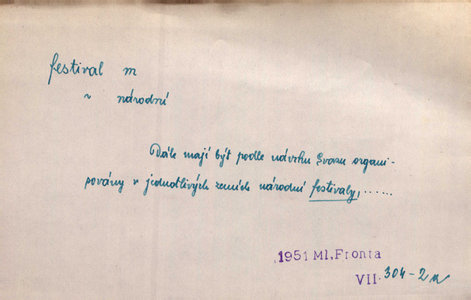 festival m
~ národní
Dále mají být podle návrhu Svazu organi-
sovány v jednotlivých zemích národní festivaly,......
1951 Ml. Fronta
VII. 304-2